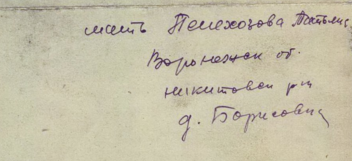 мать Пелехозова Татьяна
Воронежск об.
никитовск рн
д. Борисовка